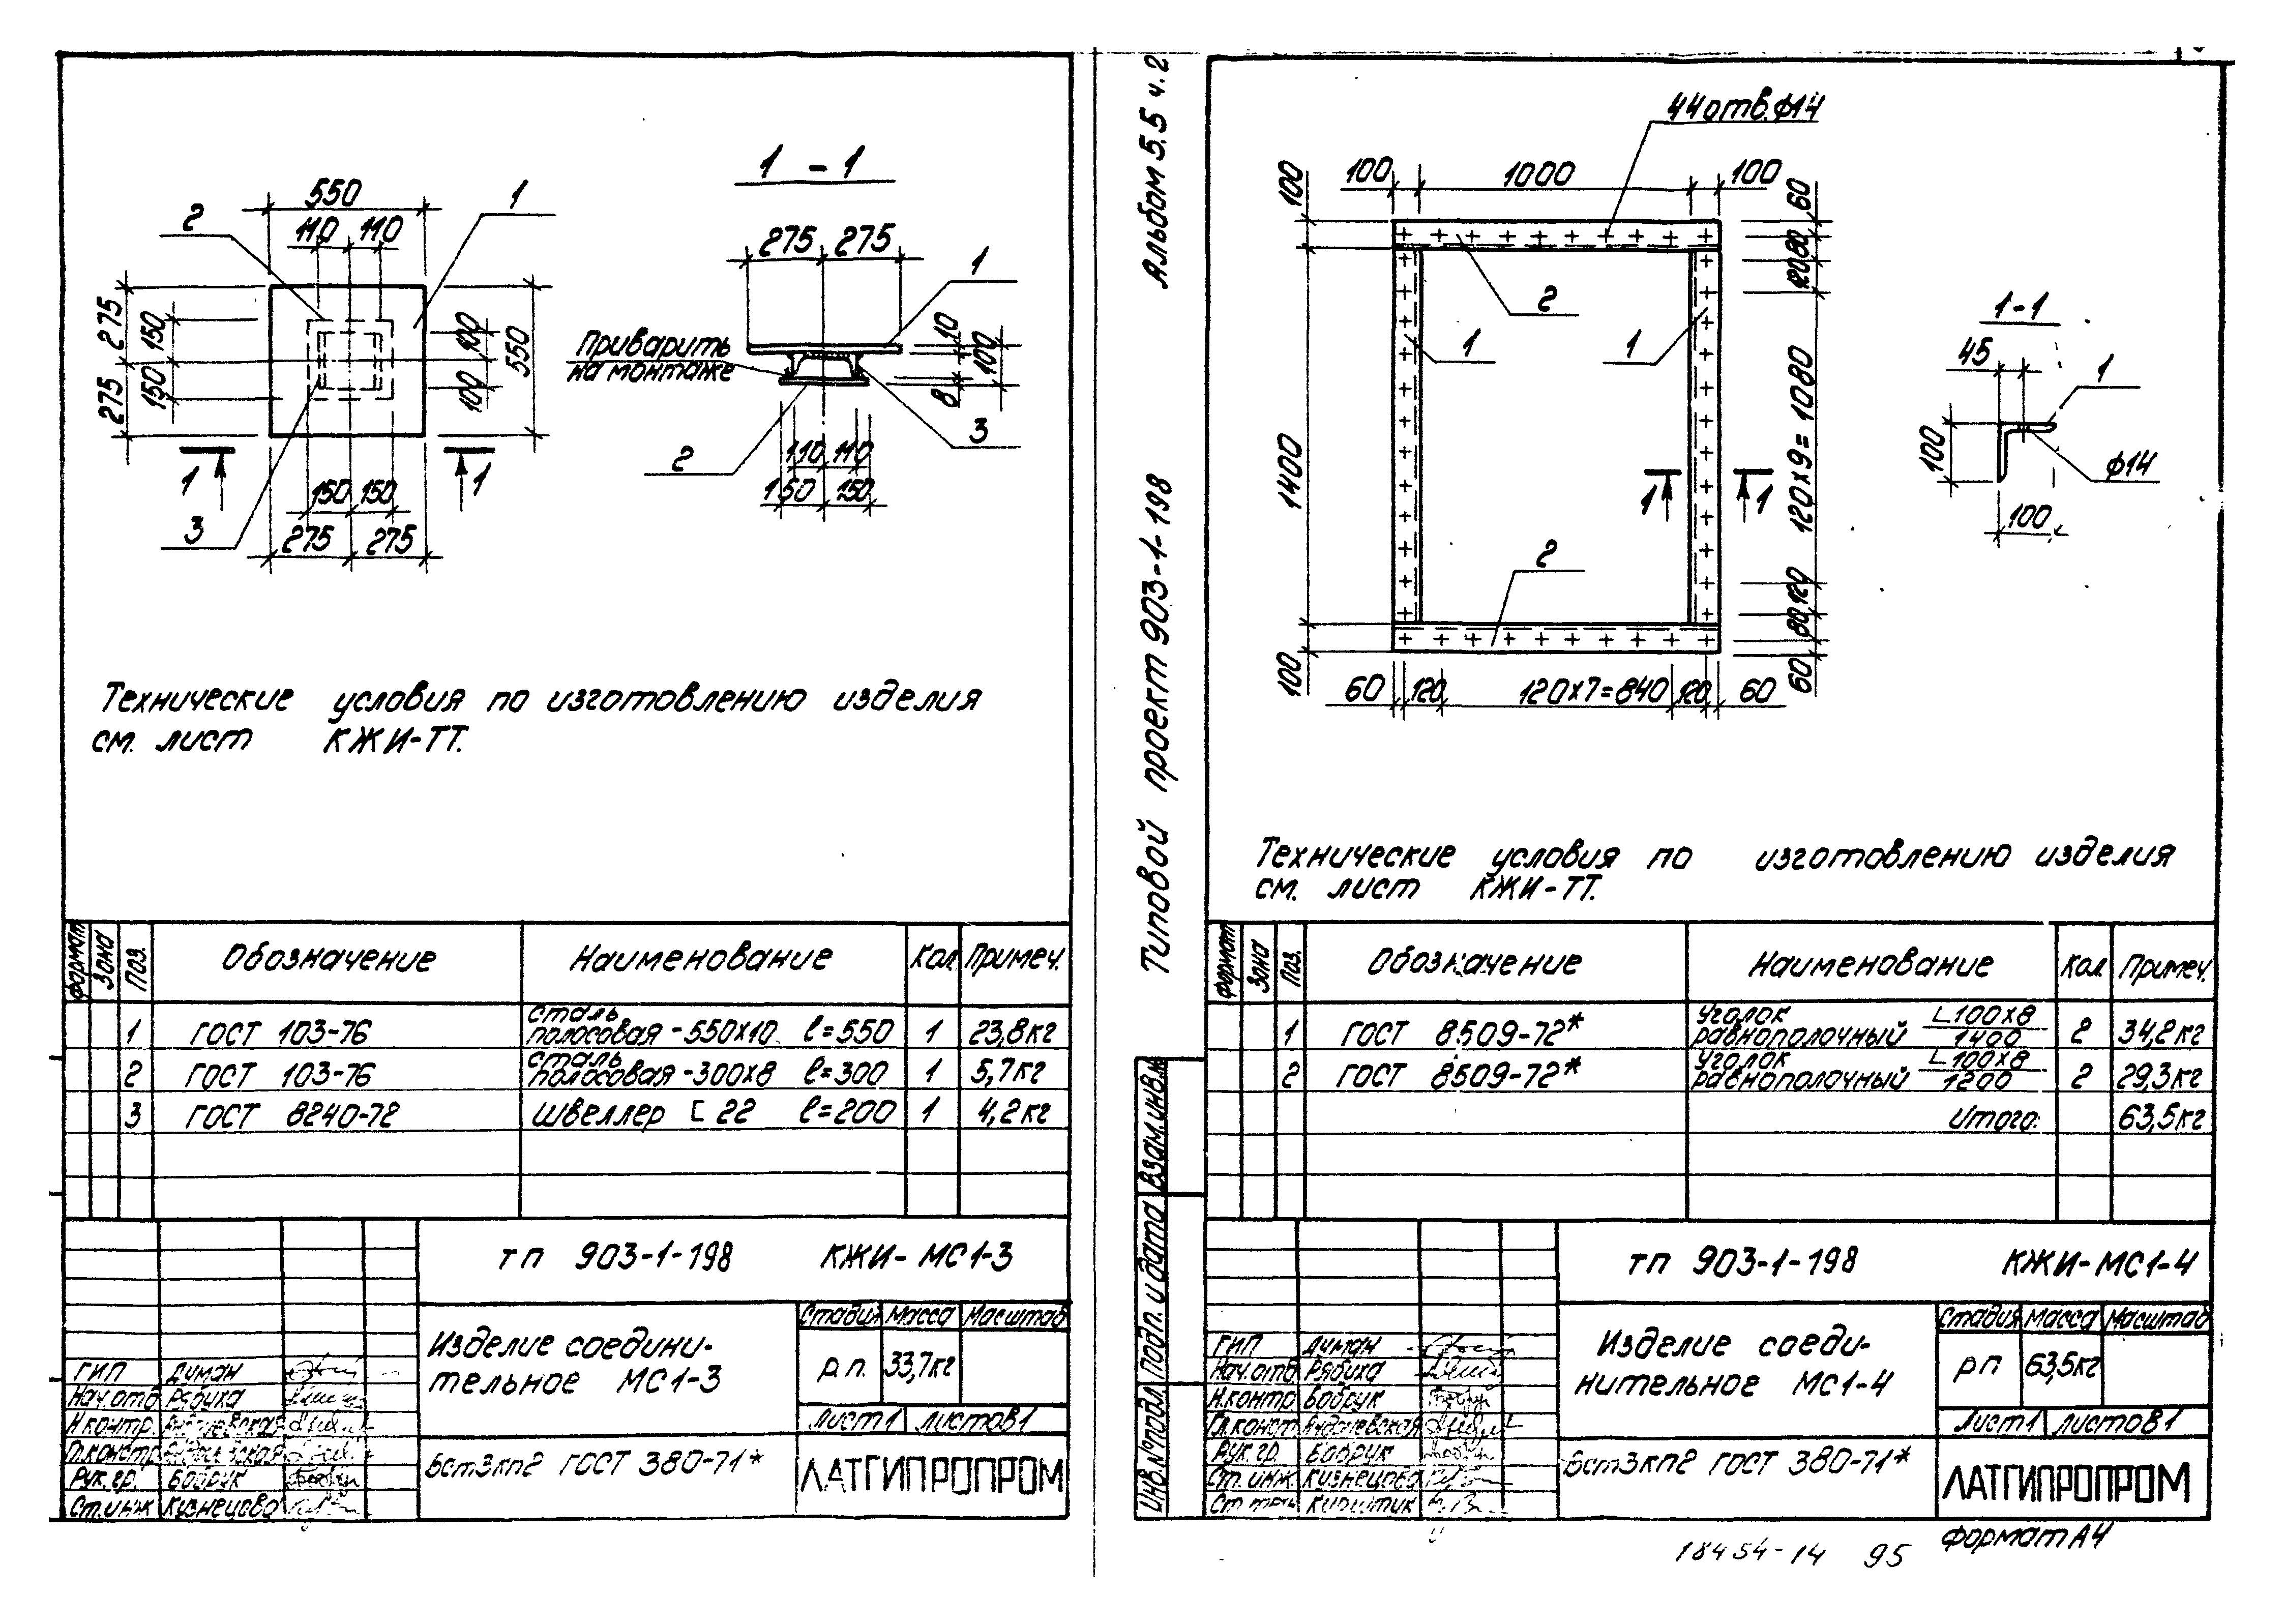 1 - 1
550
1
2
110 110
275 275
1
275
150
100
550
Приварить
на монтаже
10
100
275
150
100
8
3
2
110 110
150 150
1
1
150 150
3
275 275
Технические условия по изготовлению изделия
см. лист КЖИ-ТТ.
Формат Зона Поз. Обозначение Наименование Кол. Примеч.
1 ГОСТ 103-76 сталь полосовая -550х10 ℓ=550 1 23,8кг
2 ГОСТ 103-76 сталь полосовая -300х8 ℓ=300 1 5,7кг
3 ГОСТ 8240-72 швеллер [ 22 ℓ=200 1 4,2кг
ТП 903-1-198 КЖИ-МС1-3
Изделие соедини-
тельное МС1-3
Стадия Масса Масштаб
р.п. 33,7кг
Лист1 листов1
ГИП Думан
Нач.отд Рябиха
Н.контр.
Гл.констр.
Рук.гр. Бобрук
Ст.инж Кузнецова
Бст3кп2 ГОСТ 380-71*
ЛАТГИПРОПРОМ
Альбом 5.5 ч.2
Типовой проект 903-1-198
Взам.инв.№
Подп. и дата
Инв.№подл.
44отв.ф14
100 1000 100
100
60
80
120
2
1
1
1400
120х9=1080
1
1
2
120
80
60
100
60 120 120х7=840 120 60
1-1
45
1
100
ф14
100
Технические условия по изготовлению изделия
см. лист КЖИ-ТТ.
Формат Зона Поз. Обозначение Наименование Кол Примеч.
1 ГОСТ 8509-72* Уголок равнополочный ∟100х8 1400 2 34,2кг
2 ГОСТ 8509-72* Уголок равнополочный ∟100х8 1200 2 29,3кг
Итого: 63,5кг
ТП 903-1-198 КЖИ-МС1-4
Изделие соеди-
нительное МС1-4
Стадия Масса Масштаб
рп 63,5кг
Лист1 листов1
ГИП Думан
Нач.отд Рябиха
Н.контр Бобрук
Гл.конст
Рук.гр. Бобрук
Ст.инж. Кузнецова
Бст3кп2 ГОСТ 380-71*
ЛАТГИПРОПРОМ
формат А4
18454-14 95